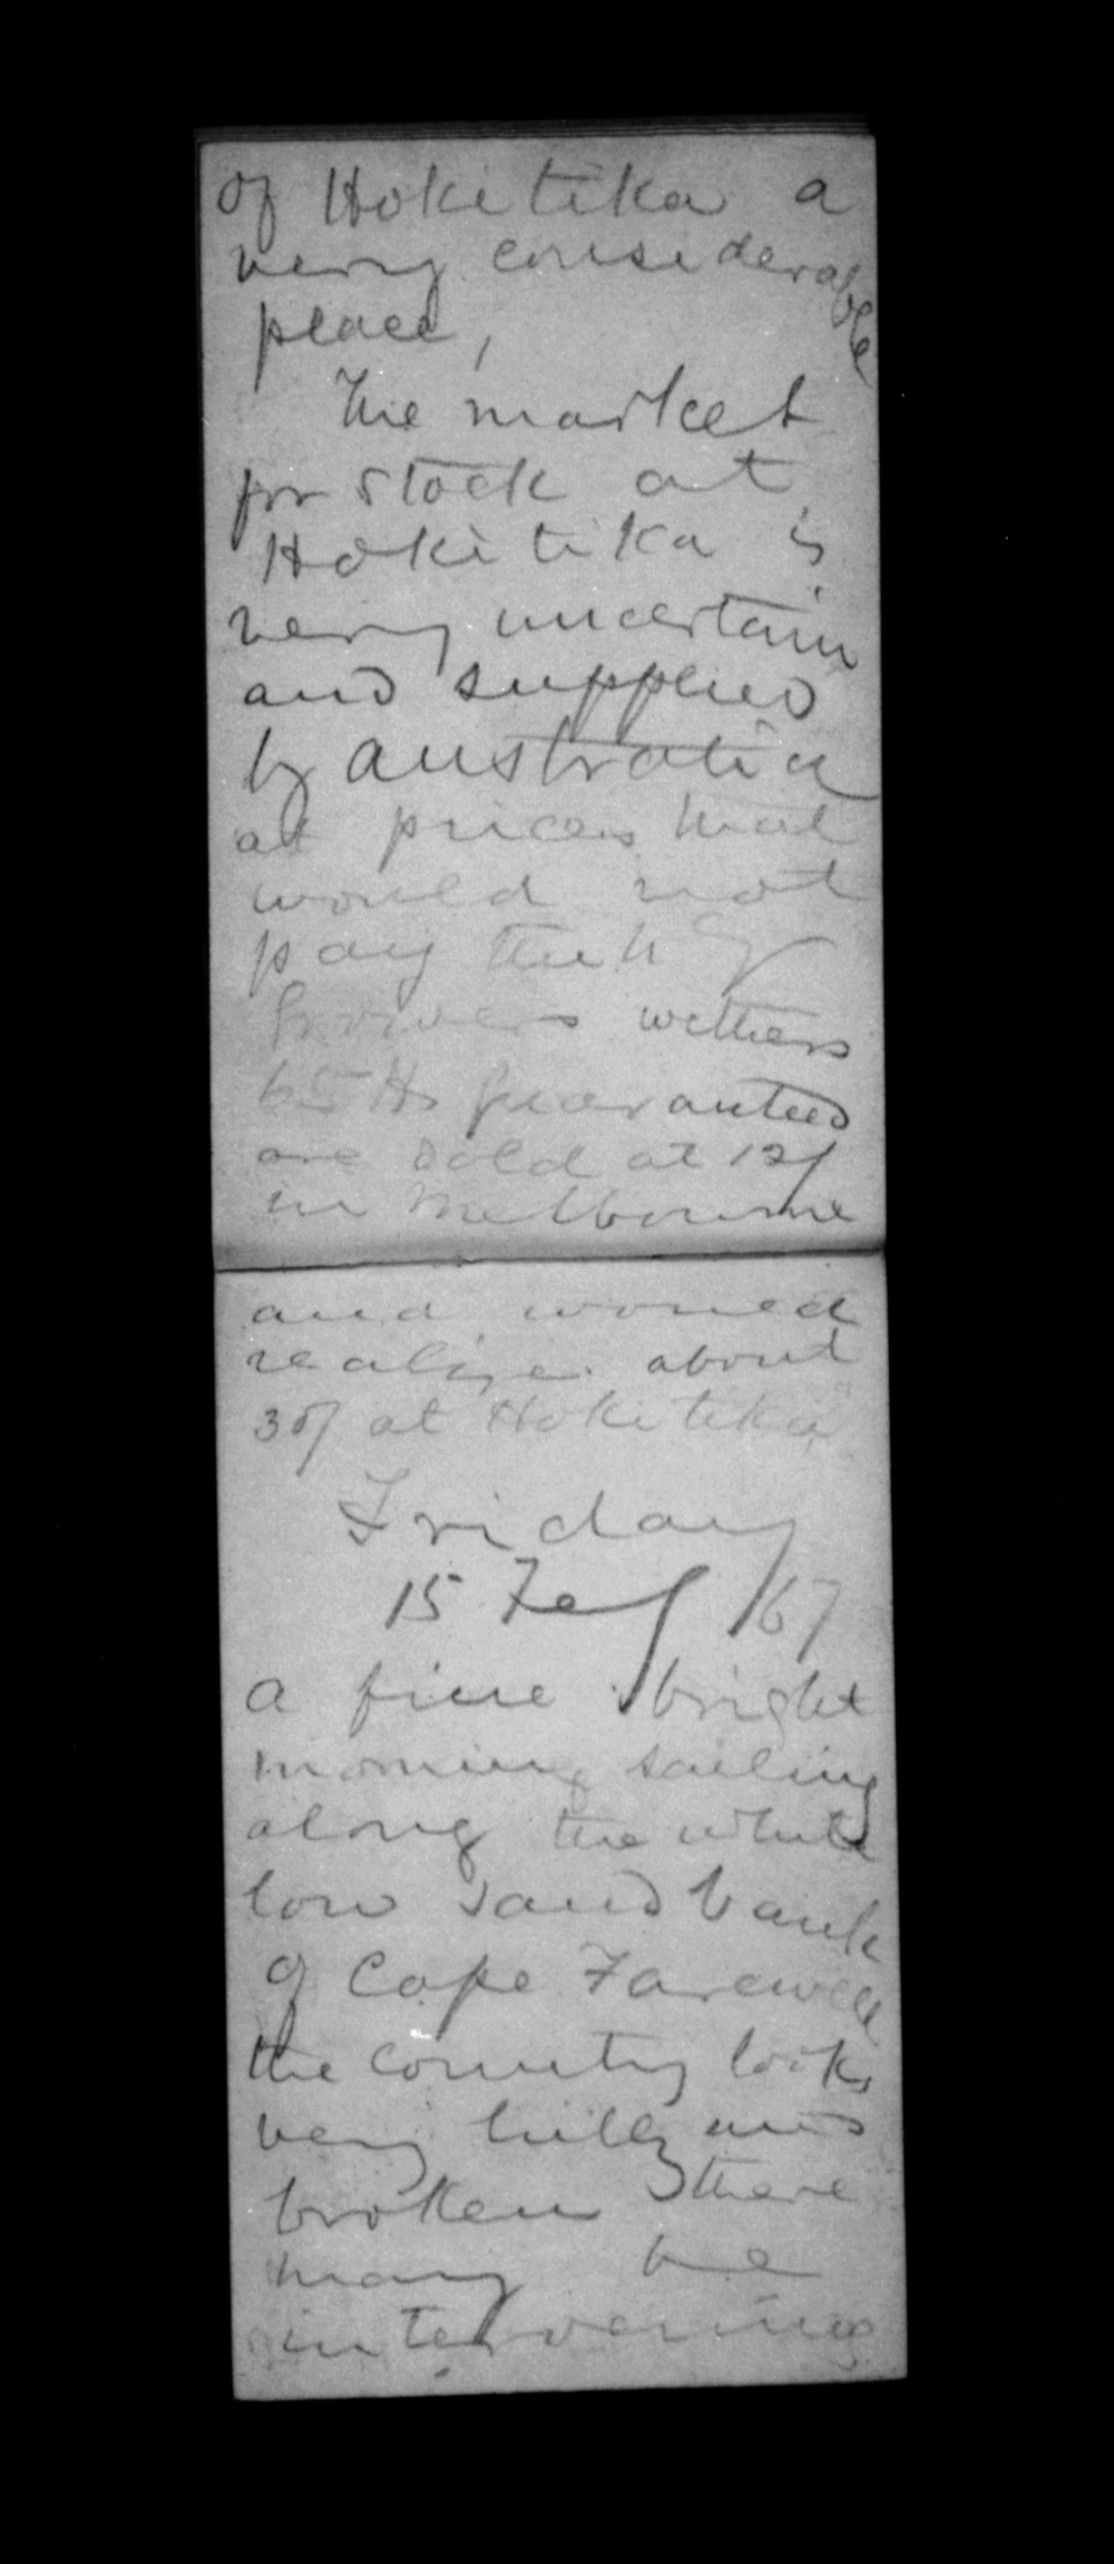 of Hokitika a
very considerable
place,
The market
for stock at
Hokitika is
very uncertain
and supplied
by Australia
at prices that
would not
pay the NZ
Growers wethers
65 lbs guaranteed
are sold at 12/
in Melbourne
and would
realize about
30/ at Hokitika
Friday
15 Feby /67
a fine bright
morning sailing
along the white
low sand bank
of Cape Farewell
the country looks
very hilly and
broken there
may be
intervening